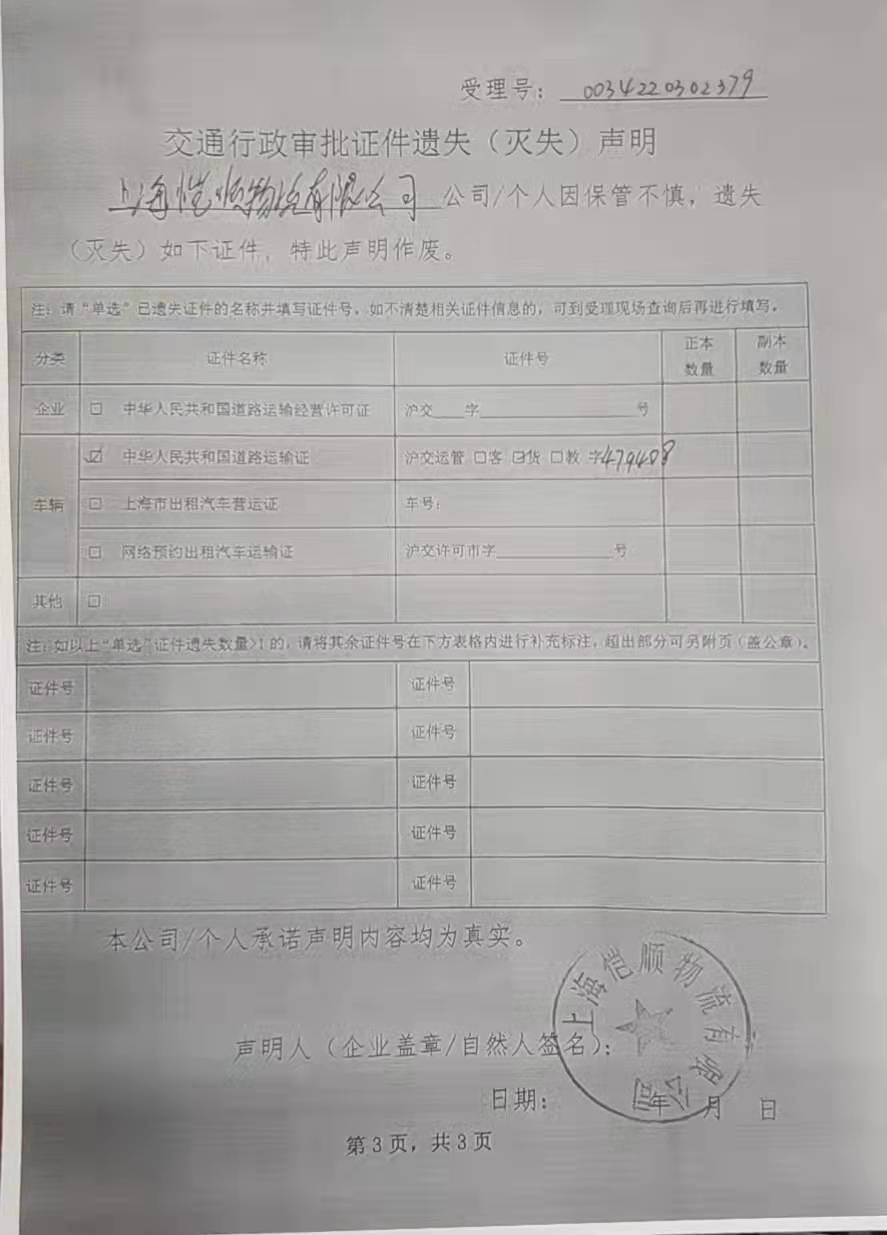 受理号： 0034220302379
交通行政审批证件遗失（灭失）声明
上海恺顺物流有限公司 公司/个人因保管不慎，遗失
（灭失）如下证件，特此声明作废。
注：请“单选”已遗失证件的名称并填写证件号，如不清楚相关证件信息的，可到受理现场查询后再进行填写。
分类 证件名称 证件号 正本数量 副本数量
企业 □ 中华人民共和国道路运输经营许可证 沪交____字________________号
车辆 ☑ 中华人民共和国道路运输证 沪交运管 □客 ☑货 □教 字479408
□ 上海市出租汽车营运证 车号：
□ 网络预约出租汽车运输证 沪交许可市字____________号
其他 □
注：如以上“单选”证件遗失数量>1的，请将其余证件号在下方表格内进行补充标注，超出部分可另附页（盖公章）。
证件号 证件号
证件号 证件号
证件号 证件号
证件号 证件号
证件号 证件号
本公司/个人承诺声明内容均为真实。
声明人（企业盖章/自然人签名）：
上海恺顺物流有限公司
日期： 年 月 日
第3页，共3页